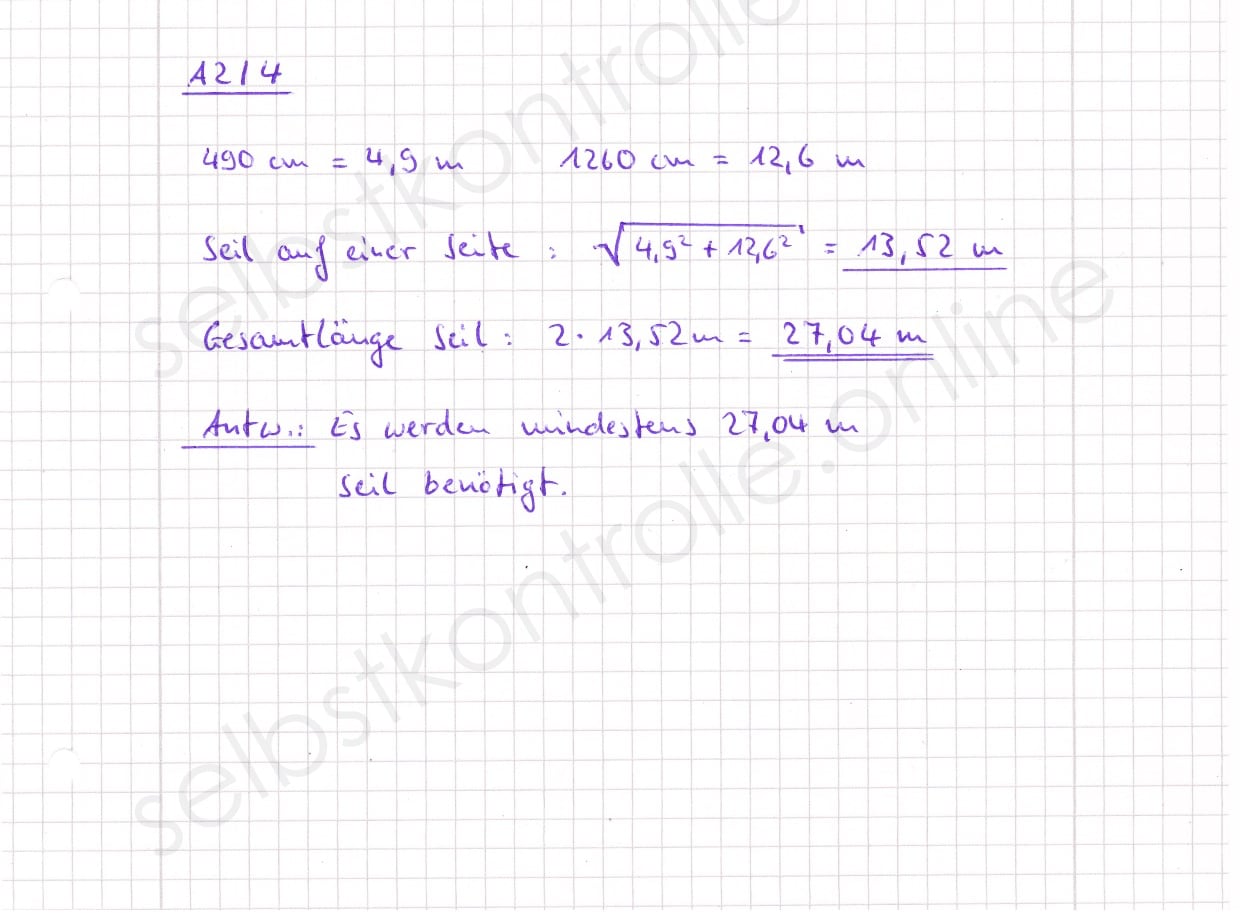 A2/4
490 cm = 4,9 m 1260 cm = 12,6 m
Seil auf einer Seite: √4,9² + 12,6² = 13,52 m
Gesamtlänge Seil: 2 · 13,52 m = 27,04 m
Antw.: Es werden mindestens 27,04 m
Seil benötigt.
selbstkontrolle.online
selbstkontrolle.online